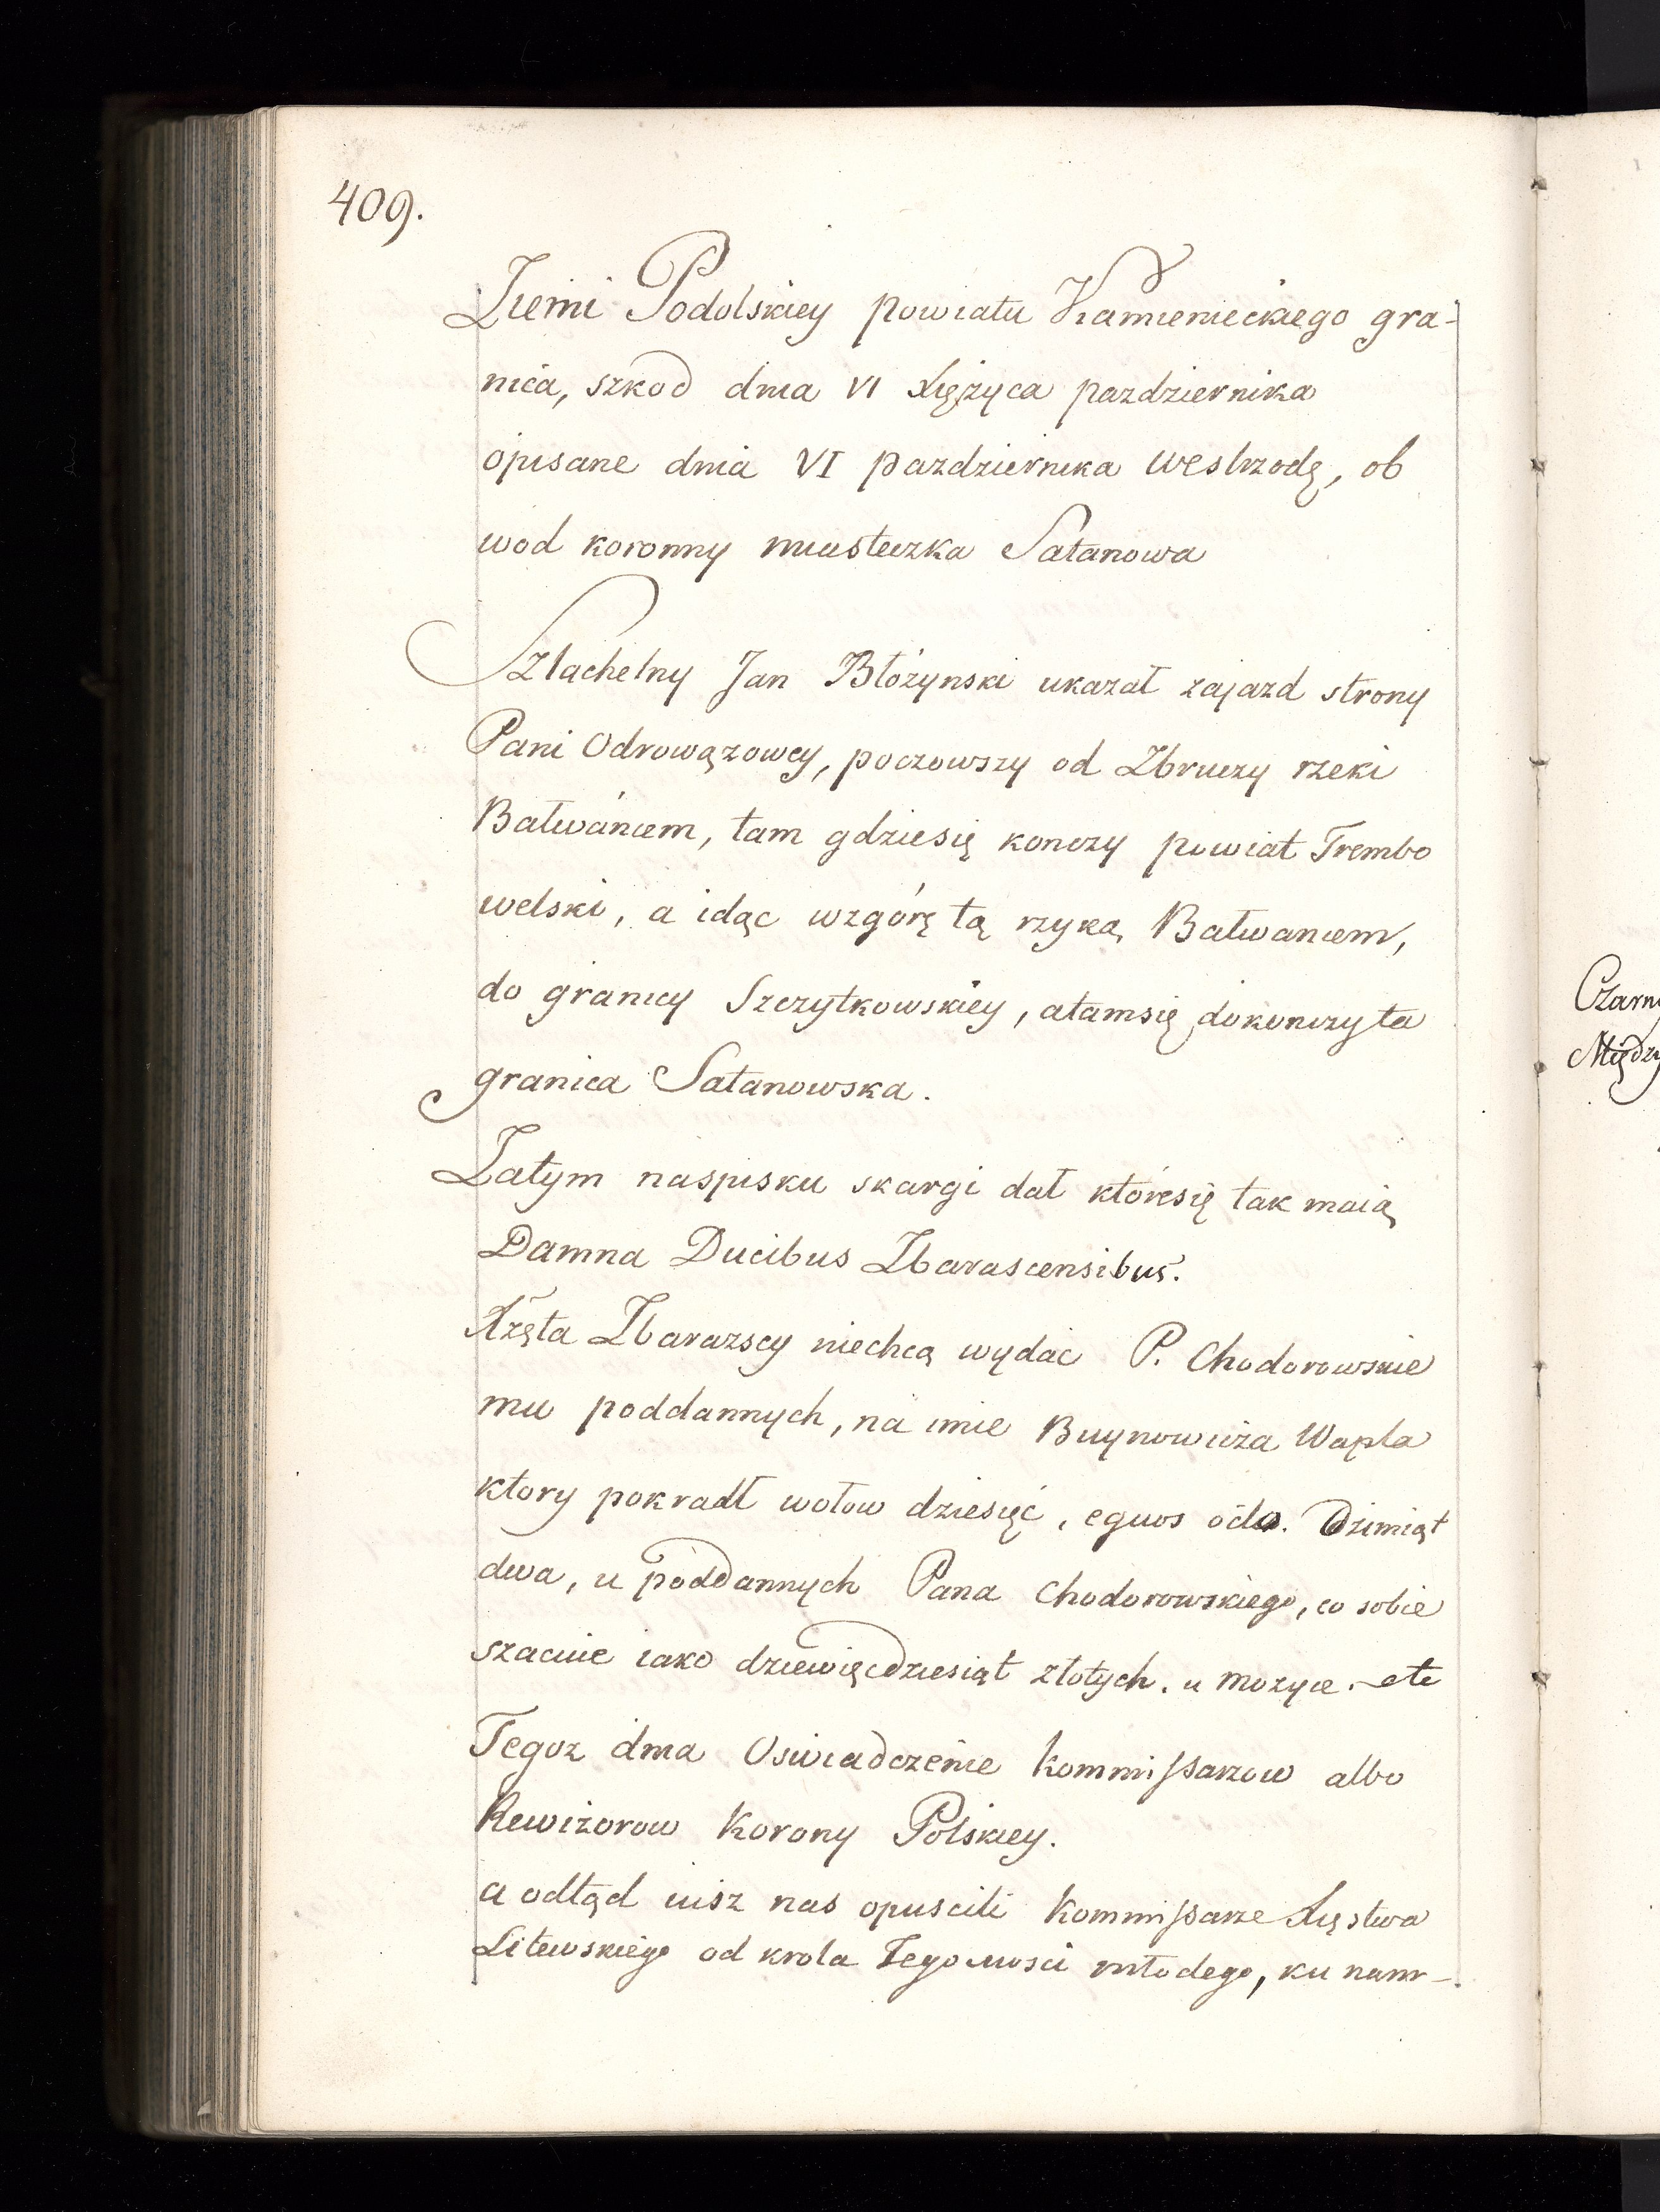 409.
Ziemi Podolskiey powiatu Kamienieckiego gra-
nica, szkod dnia VI Xiężyca pazdziernika
opisane dnia VI pazdziernika wesrzodę, ob
wod koronny miasteczka Satanowa
Szlachetny Jan Błóżynski ukazał zajazd strony
Pani Odrowązowey, poczowszy od Zbruczy rzeki
Bałwańcem, tam gdziesię konczy powiat Trembo
welski, a idąc wzgórę tą rzyką Bałwancem,
do granicy Szczytkowskiey, atamsię dokonczyta
granica Satanowska.
Zatym naspisku skargi dał któresię tak maią
Damna Ducibus Zbarascensibus.
Xżęta Zbarazscy niechcą wydać P. Chodorowskie
mu poddannych, na imie Buynowicza Wapla
ktory pokradł wołow dziesięć, equos
dwa, u poddannych Pana Chodorowskiego, co sobie
szacuie iako dziewięcdziesiąt złotych. u Mozyce. etc
Tegoz dnia Oswiadczenie Kommissarzow albo
Rewizorow Korony Polskiey.
a odtąd iusz nas opuscili Kommissarze Xięstwa
Litewskiego od krola Jegomosci młodego, ku nam-
Czarn
Między